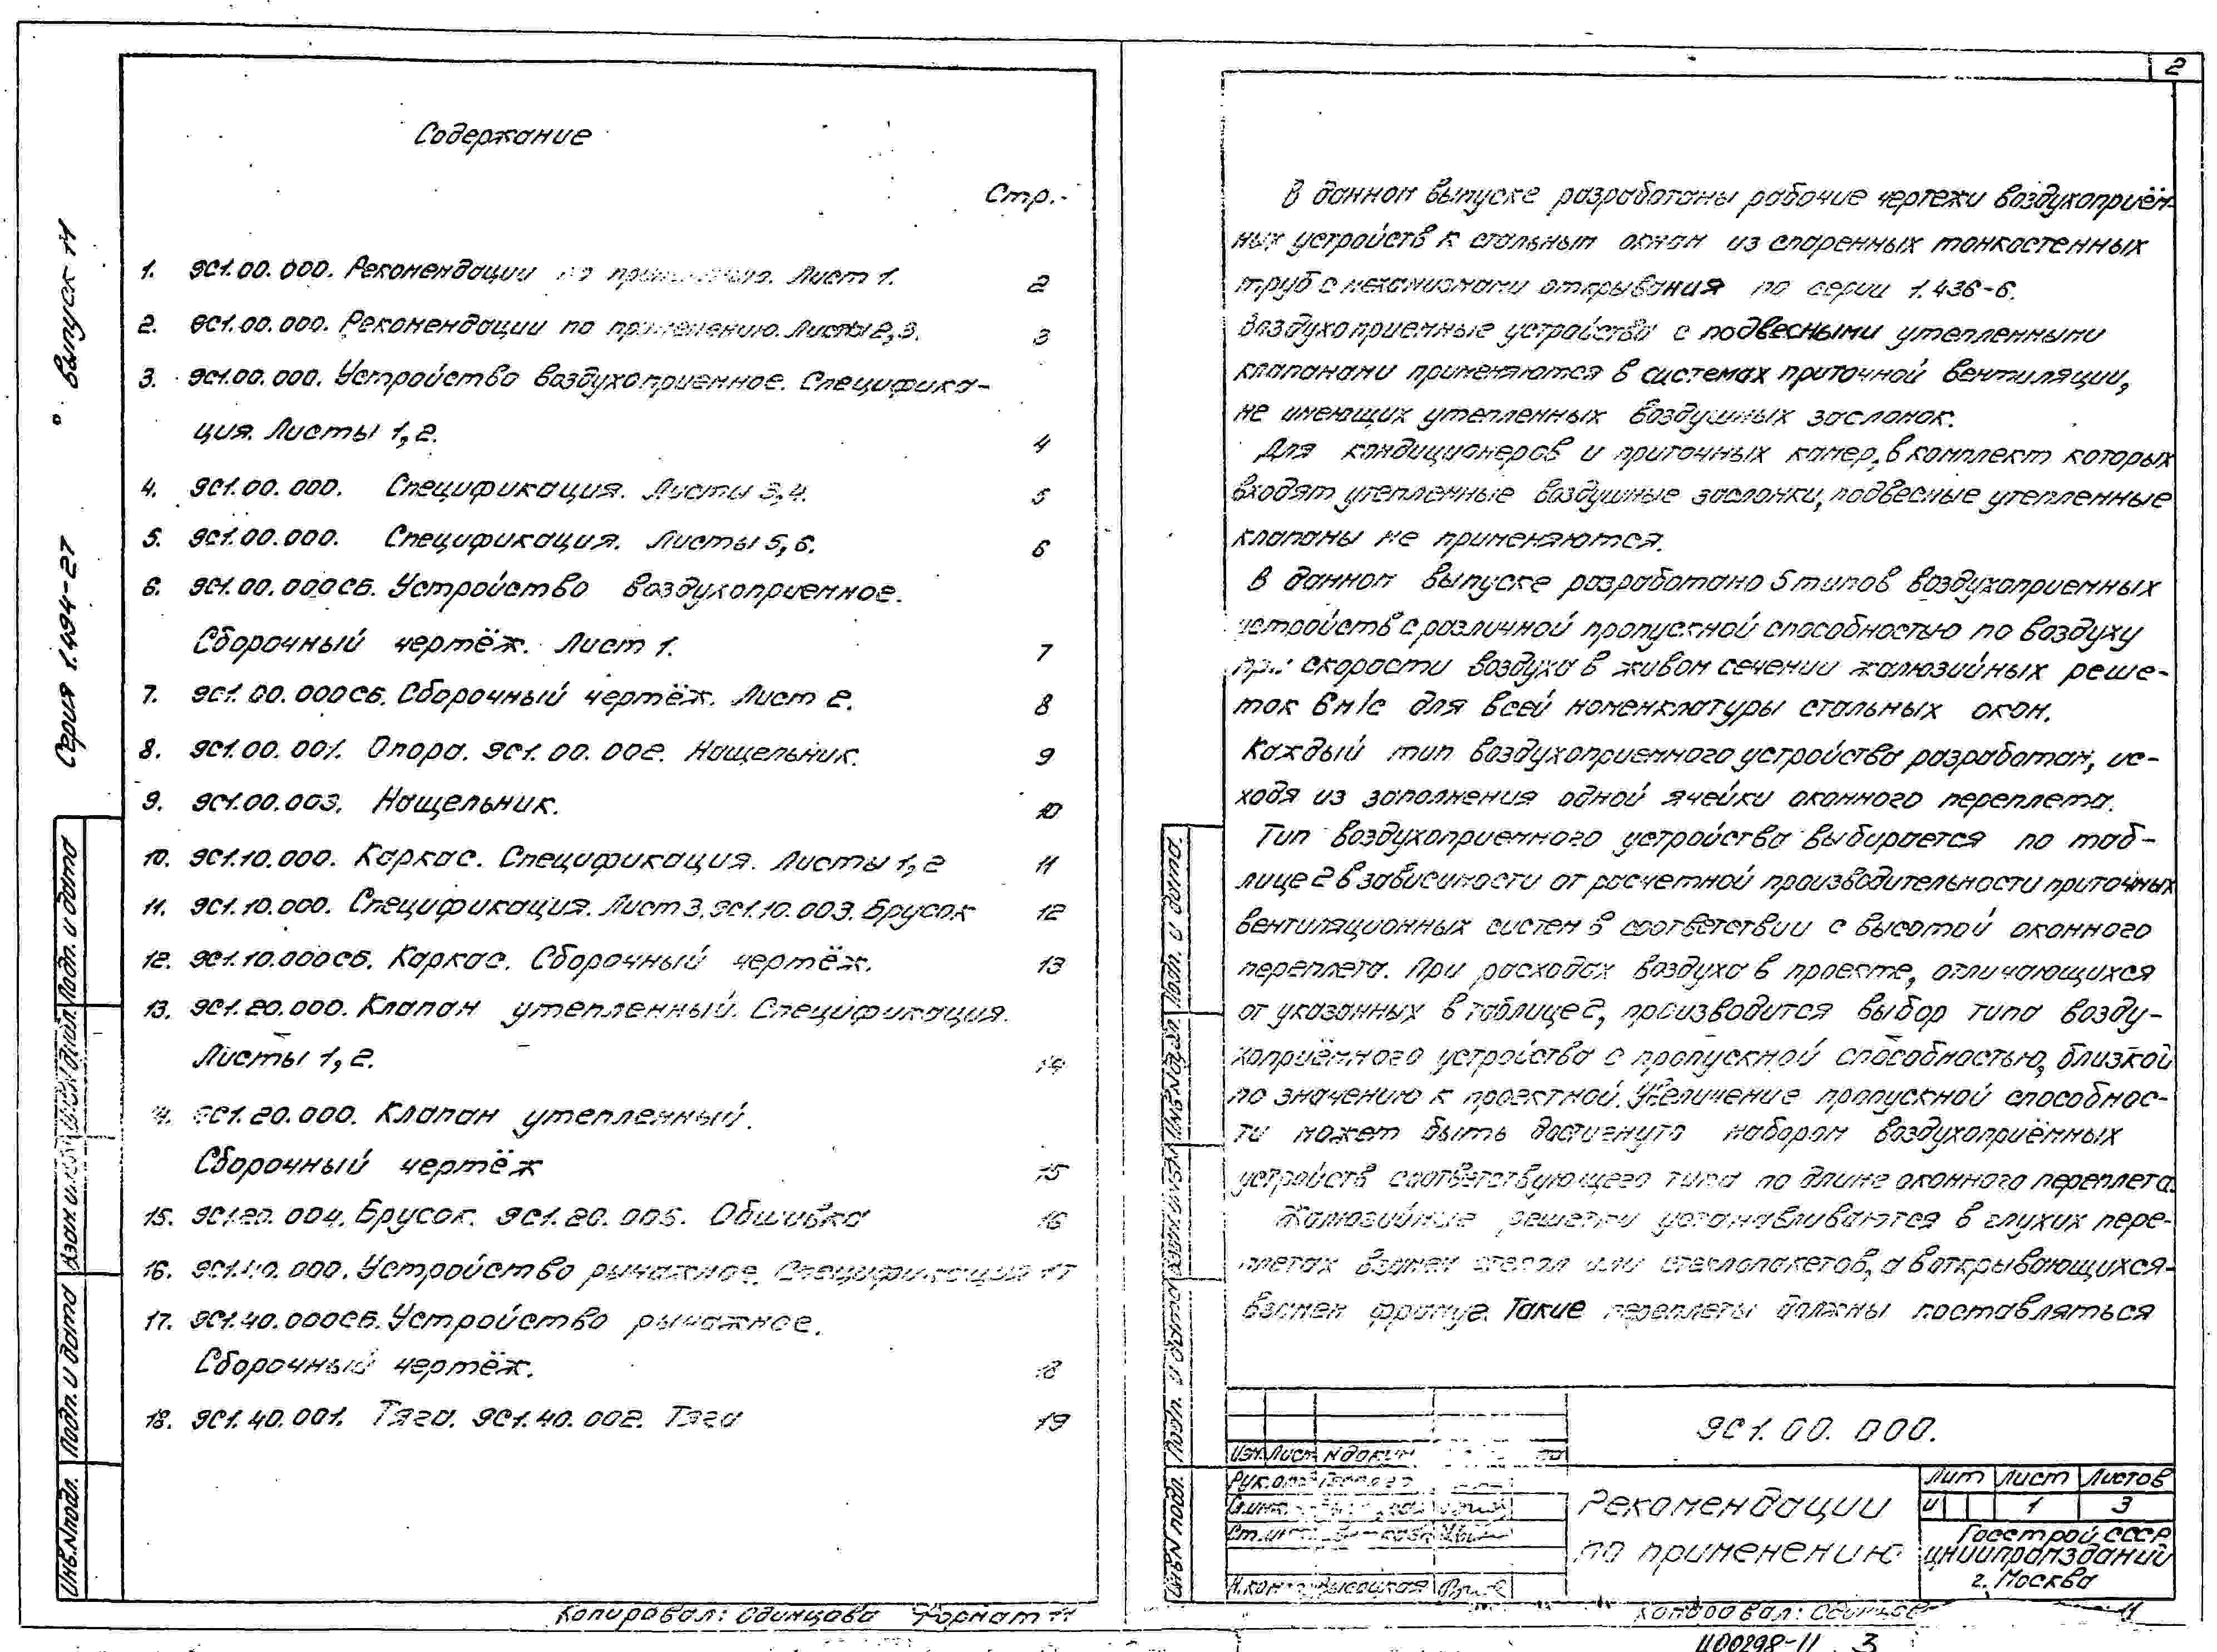 Содержание
Стр.
1. 9С1.00.000. Рекомендации по применению. Лист 1. 2
2. 9С1.00.000. Рекомендации по применению. Листы 2,3. 3
3. 9С1.00.000. Устройство воздухоприемное. Специфика-
ция. Листы 1,2. 4
4. 9С1.00.000. Спецификация. Листы 3,4. 5
5. 9С1.00.000. Спецификация. Листы 5,6. 6
6. 9С1.00.000СБ. Устройство воздухоприемное.
Сборочный чертёж. Лист 1. 7
7. 9С1.00.000СБ. Сборочный чертёж. Лист 2. 8
8. 9С1.00.001. Опора. 9С1.00.002. Нащельник. 9
9. 9С1.00.003. Нащельник. 10
10. 9С1.10.000. Каркас. Спецификация. Листы 1,2 11
11. 9С1.10.000. Спецификация. Лист 3. 9С1.10.003. Брусок 12
12. 9С1.10.000СБ. Каркас. Сборочный чертёж. 13
13. 9С1.20.000. Клапан утепленный. Спецификация.
Листы 1,2. 14
14. 9С1.20.000. Клапан утепленный.
Сборочный чертёж 15
15. 9С1.20.004. Брусок. 9С1.20.005. Обшивка 16
16. 9С1.40.000. Устройство рычажное. Спецификация 17
17. 9С1.40.000СБ. Устройство рычажное.
Сборочный чертёж. 18
18. 9С1.40.001. Тяга. 9С1.40.002. Тяга 19
Серия 1.494-27 выпуск 11
Подп. и дата
Взам. инв.
Подп. и дата
Инв.Nподл.
Копировал: Одинцова Формат 11
2
В данном выпуске разработаны рабочие чертежи воздухоприём-
ных устройств к стальным окнам из спаренных тонкостенных
труб с механизмами открывания по серии 1.436-6.
Воздухоприемные устройства с подвесными утепленными
клапанами применяются в системах приточной вентиляции,
не имеющих утепленных воздушных заслонок.
Для кондиционеров и приточных камер, в комплект которых
входят утепленные воздушные заслонки, подвесные утепленные
клапаны не применяются.
В данном выпуске разработано 5 типов воздухоприемных
устройств с различной пропускной способностью по воздуху
при скорости воздуха в живом сечении жалюзийных реше-
ток 6м/с для всей номенклатуры стальных окон.
Каждый тип воздухоприемного устройства разработан, ис-
ходя из заполнения одной ячейки оконного переплета.
Тип воздухоприемного устройства выбирается по таб-
лице 2 в зависимости от расчетной производительности приточных
вентиляционных систем в соответствии с высотой оконного
переплета. При расходах воздуха в проекте, отличающихся
от указанных в таблице 2, производится выбор типа возду-
хоприёмного устройства с пропускной способностью, близкой
по значению к проектной. Увеличение пропускной способнос-
ти может быть достигнуто набором воздухоприёмных
устройств соответствующего типа по длине оконного переплета.
Жалюзийные решетки устанавливаются в глухих пере-
плетах взамен стекол или стеклопакетов, а в открывающихся-
взамен фрамуг. Такие переплеты должны поставляться
9С1.00.000.
Изм. Лист N докум
Рук.
Ст.
Н.кон Высоцкая
Рекомендации
по применению
Лит Лист Листов
И 1 3
Госстрой СССР
ЦНИИпромзданий
г. Москва
Инв.N подл.
Копировал: 11
Ц00298-11 3